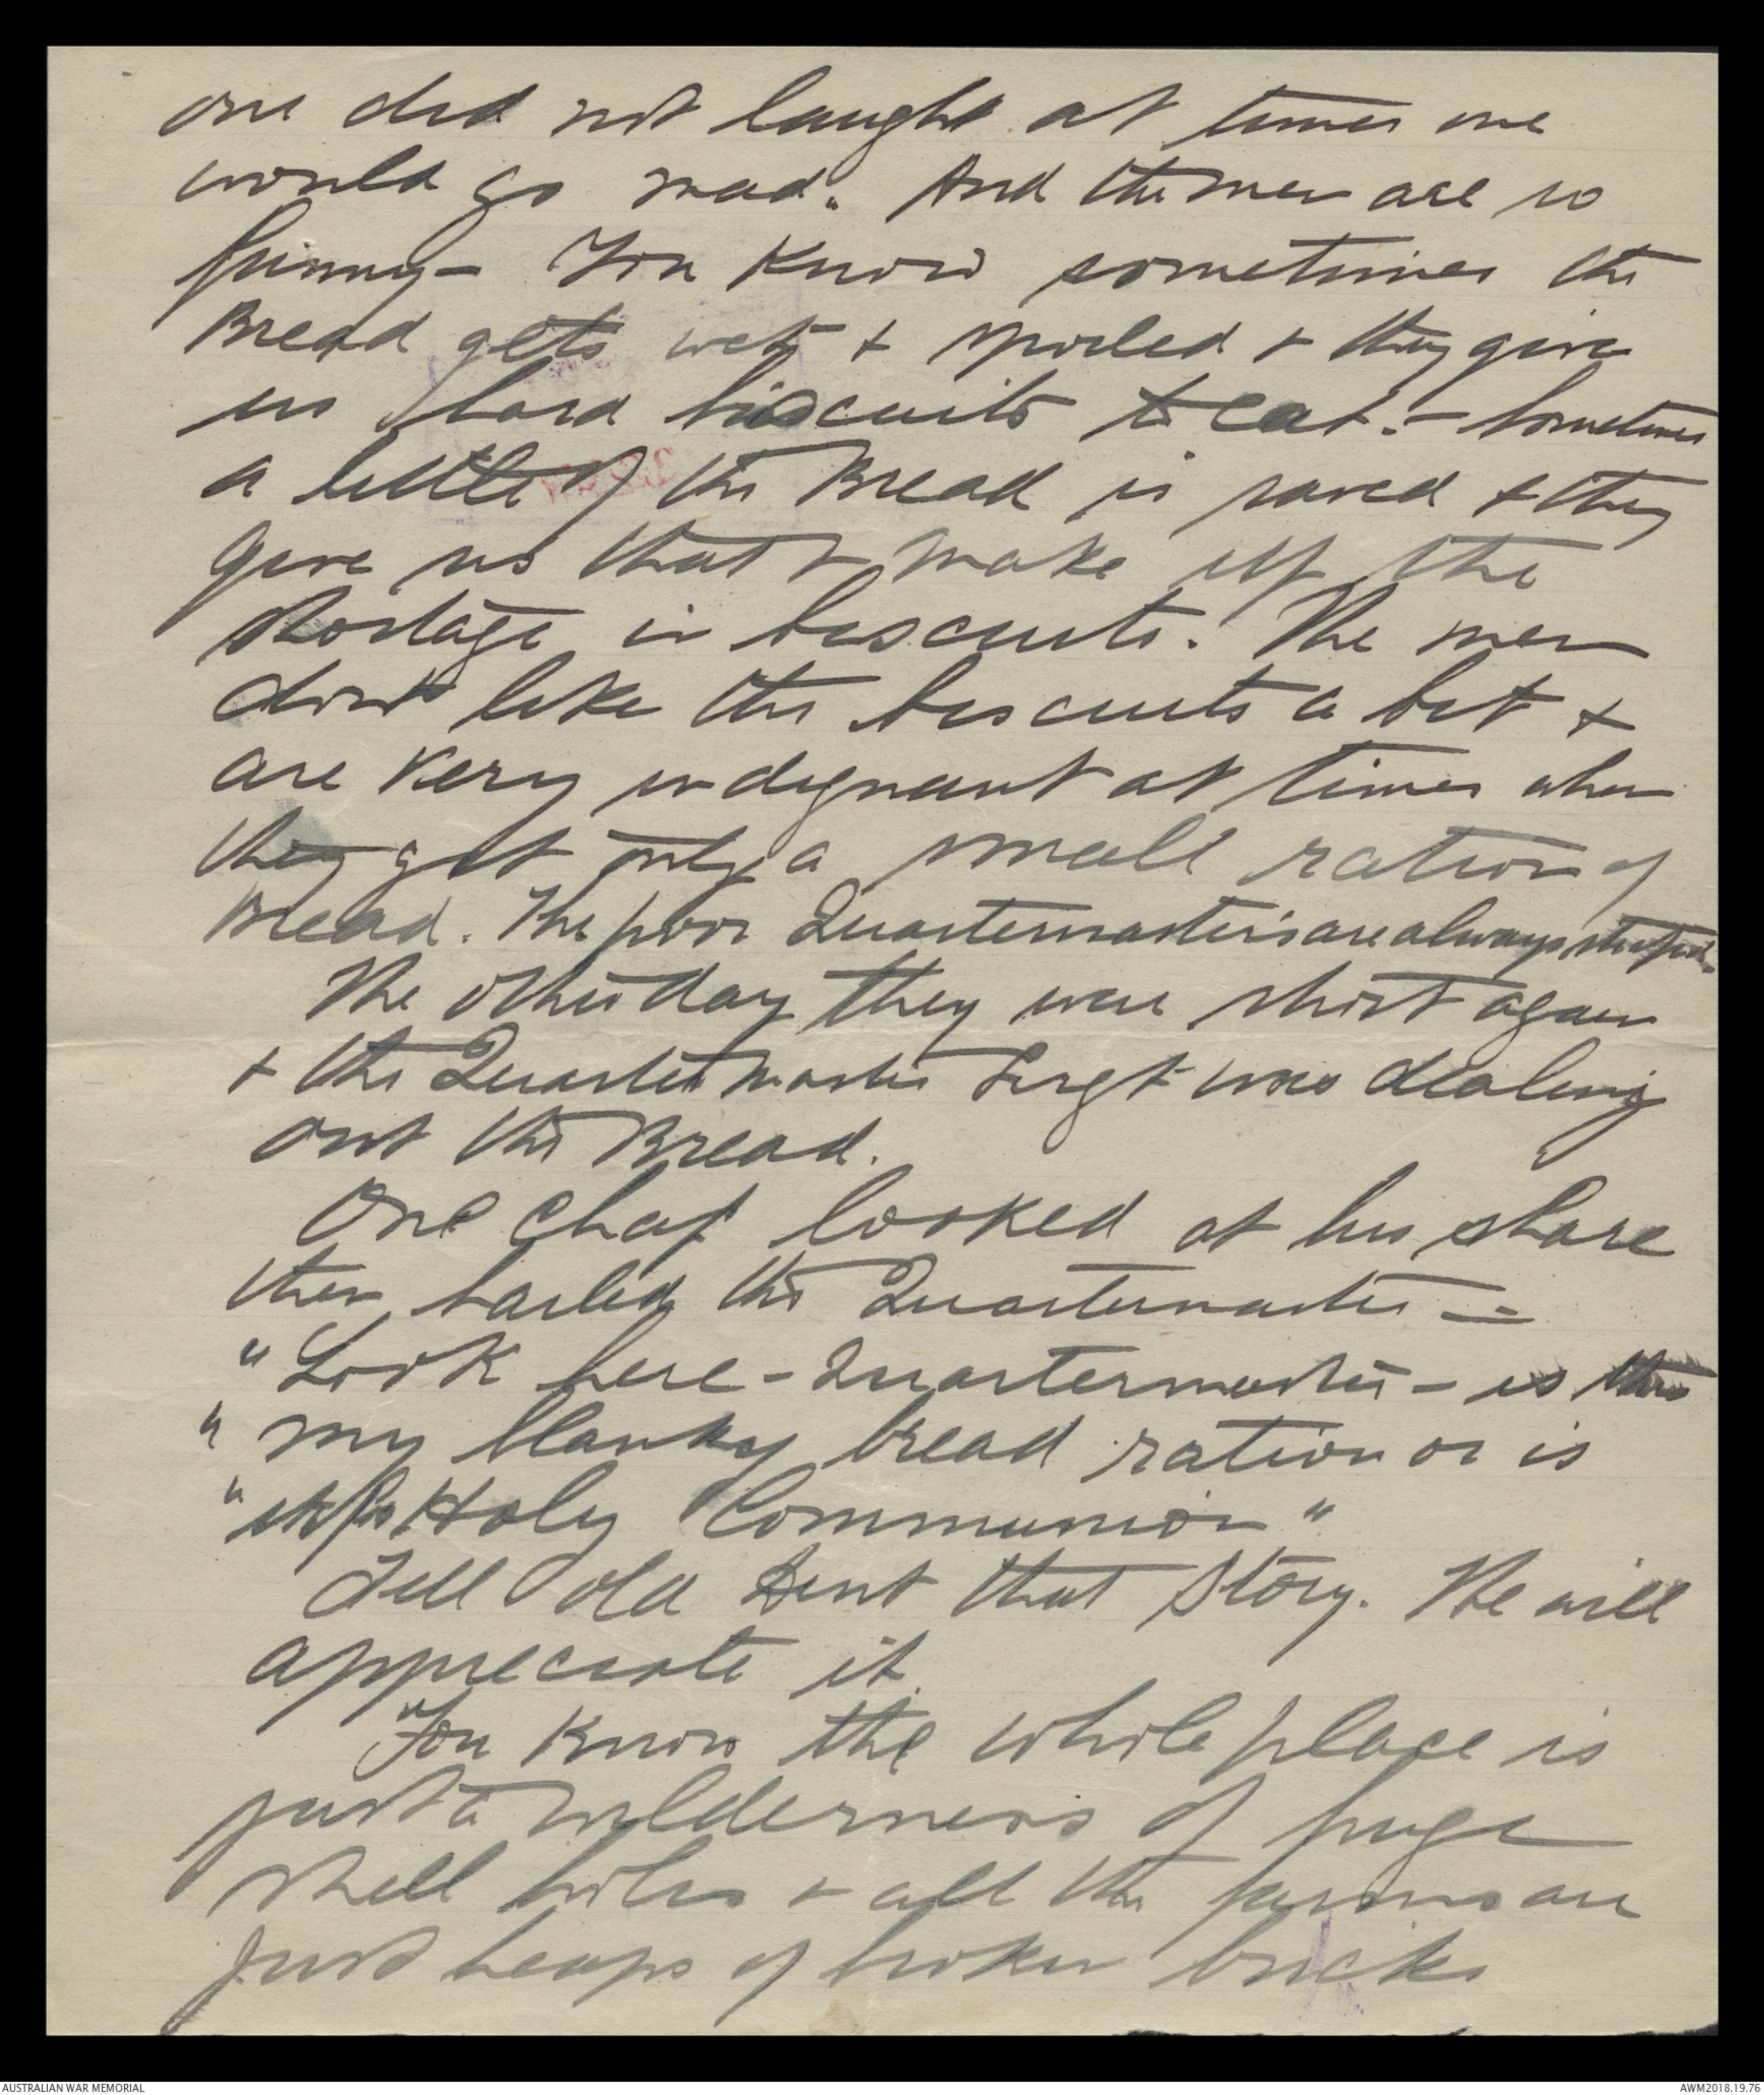 one did not laugh at times one
would go mad. And the men are so
funny - You know sometimes the
Bread gets wet & spoiled & they give
us hard biscuits to eat. - Sometimes
a little of the Bread is saved & they
give us that & make up the
shortage in biscuits. The men
dont like the biscuits a bit &
are very indignant at times when
they get only a small ration of
Bread. The poor Quartermasters are always
The other day they were short again
& the Quartermaster Sergt was dealing
out the Bread.
One chap looked at his share
then hailed the Quartermaster -
"Look here - Quartermaster - is this
" my blanky bread ration or is
" it for Holy Communion"
Tell old that story. He will
appreciate it.
You know the whole place is
just a wilderness of huge
shell holes & all the farms are
just heaps of broken bricks
AUSTRALIAN WAR MEMORIAL
AWM2018.19.76